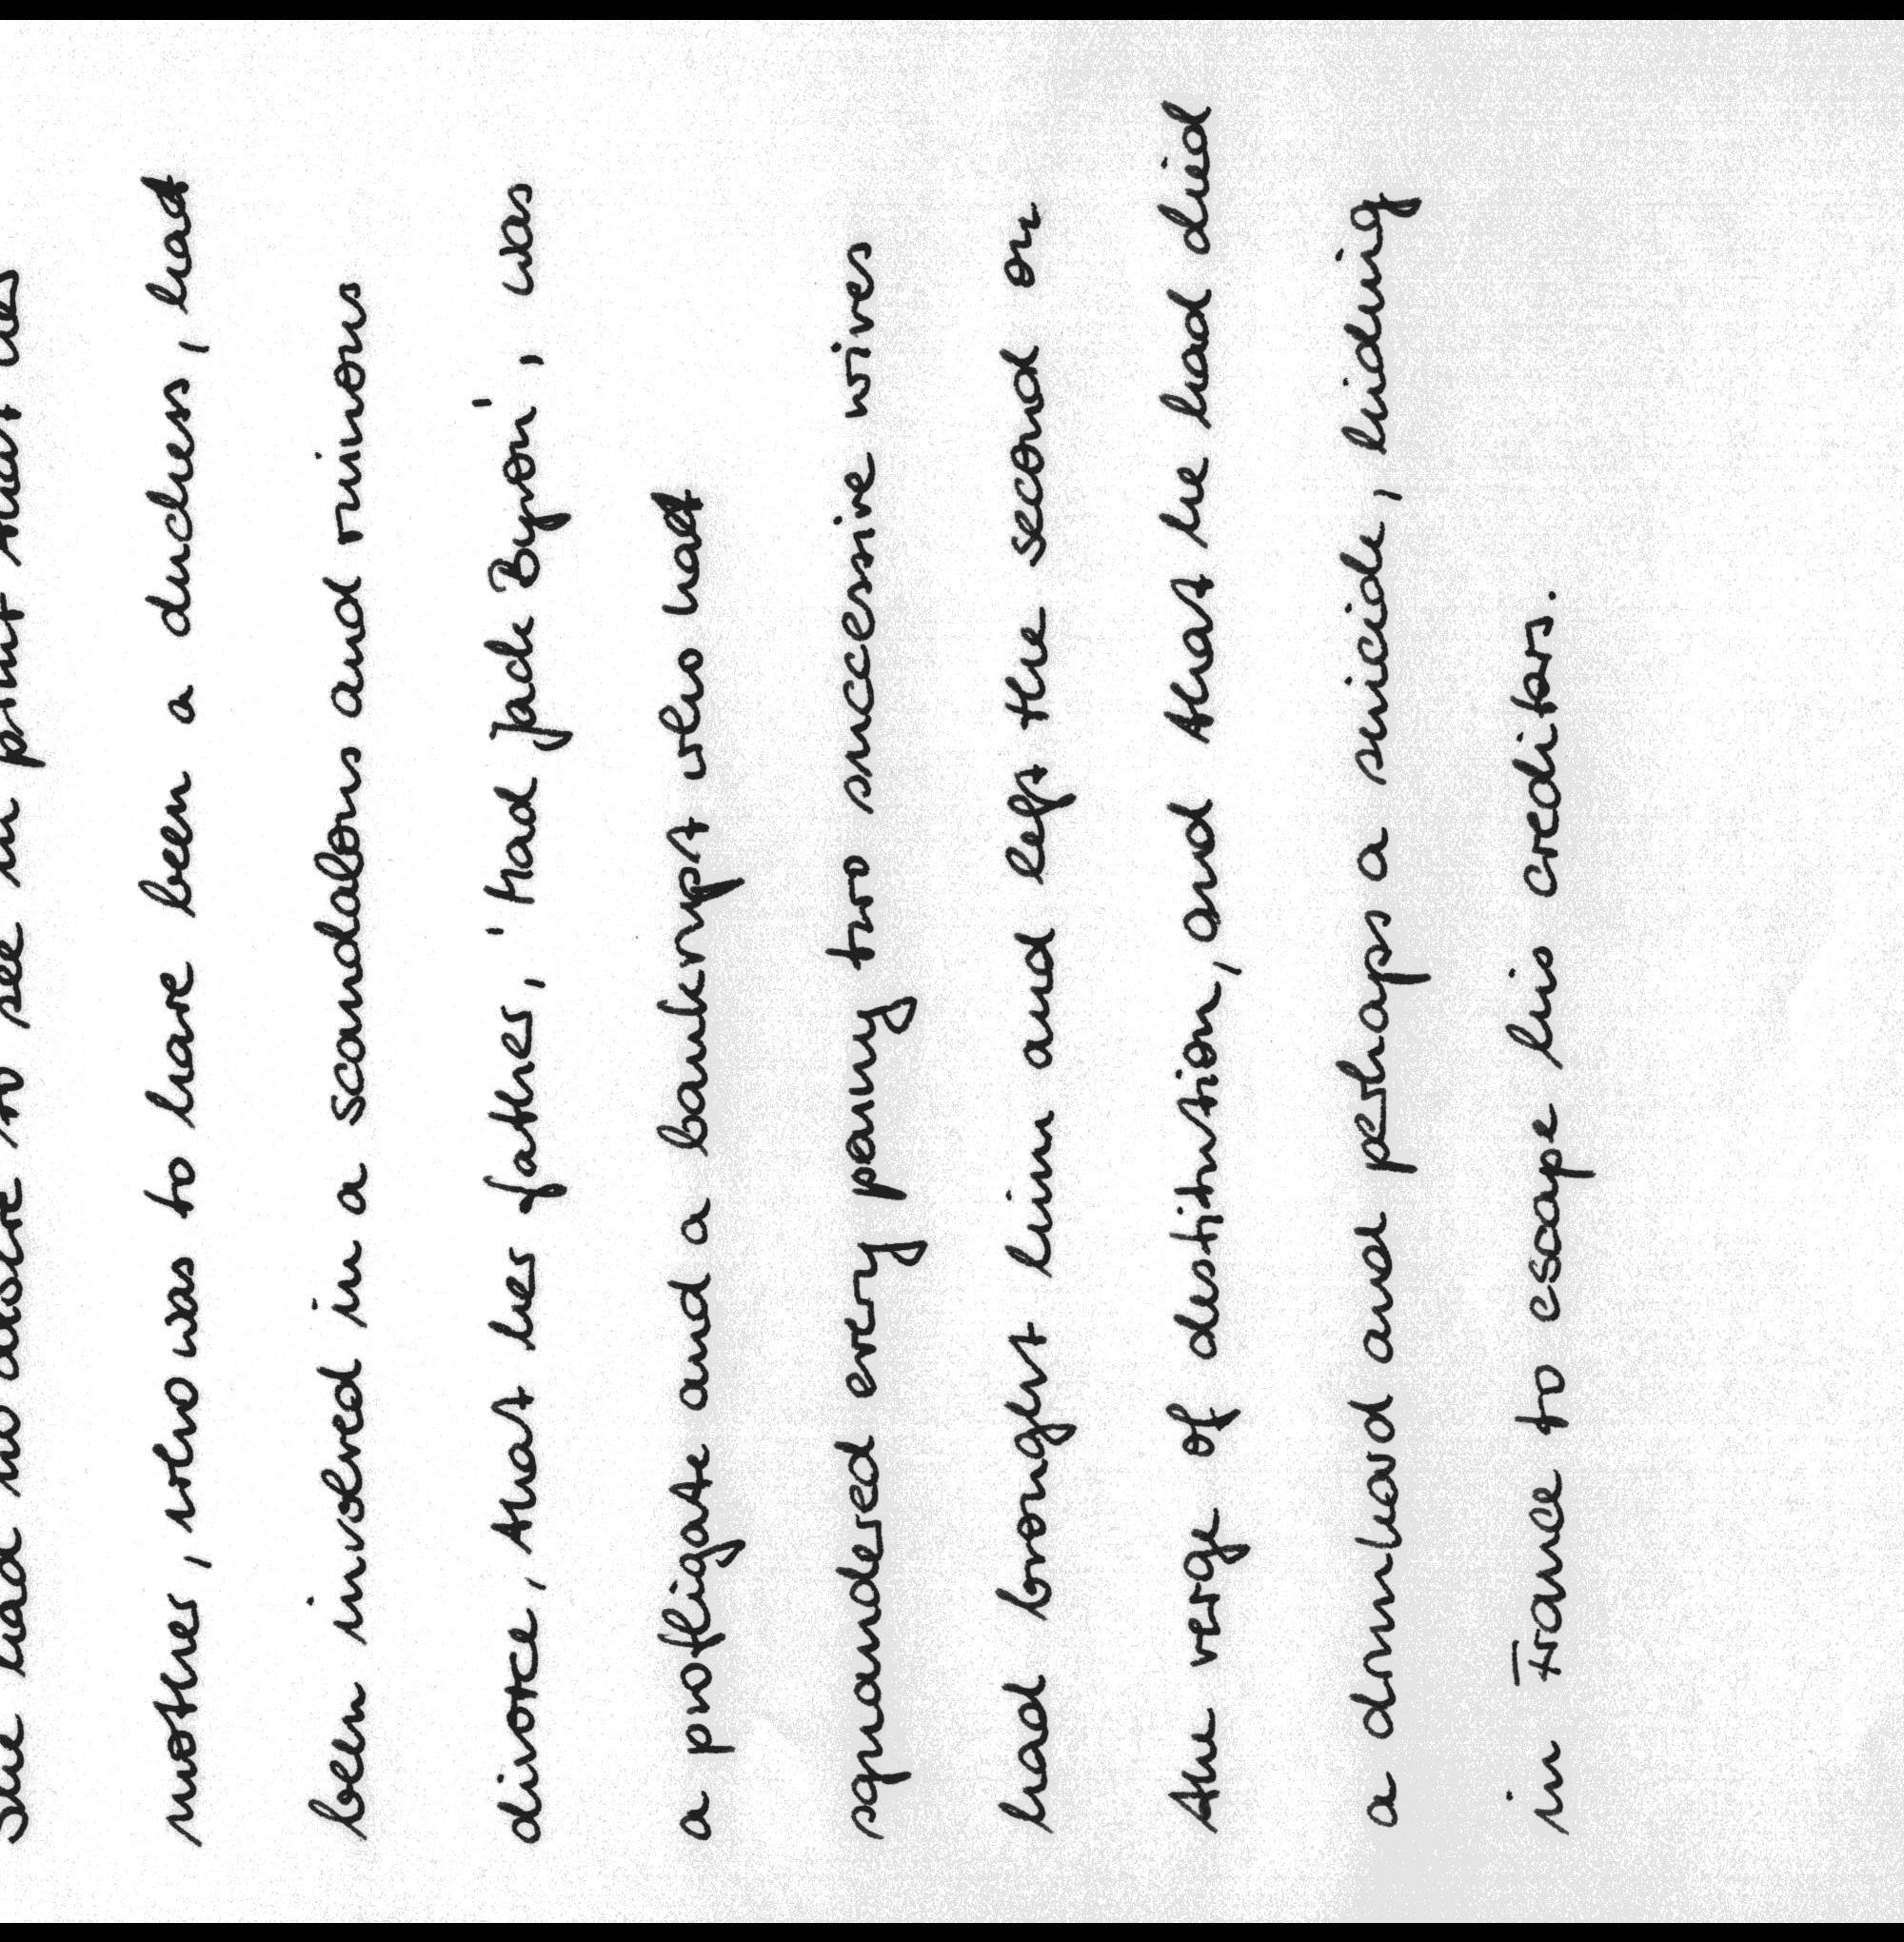 She had no desire to see in print that her
mother, who was to have been a duchess, had
been involved in a scandalous and ruinous
divorce, that her father, 'Mad Jack Byron', was
a profligate and a bankrupt who had
squandered every penny two successive wives
had brought him and left the second on
the verge of destitution, and that he had died
a drunkard and perhaps a suicide, hiding
in France to escape his creditors.